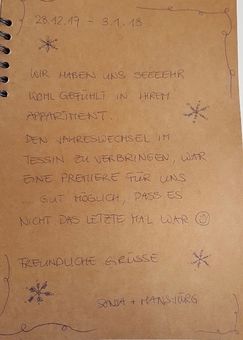 28.12.17 - 3.1.18
WIR HABEN UNS SEEEEHR
WOHL GEFÜHLT IN IHREM
APPARTMENT.
DEN JAHRESWECHSEL IM
TESSIN ZU VERBRINGEN, WAR
EINE PREMIERE FÜR UNS
... GUT MÖGLICH, DASS ES
NICHT DAS LETZTE MAL WAR ☺
FREUNDLICHE GRÜSSE
SONJA + HANSJÜRG